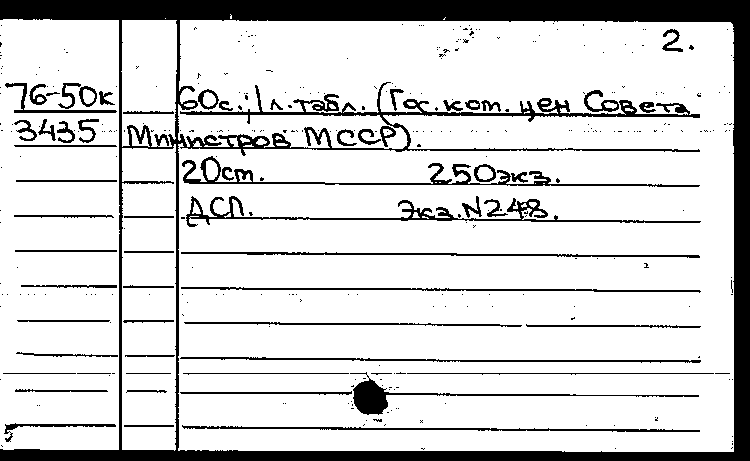 2.
76-50к 60с.; 1 л. табл. (Гос. ком. цен Совета
3435 Министров МССР).
20 ст. 250 экз.
ДСП. Экз. N 248.
5